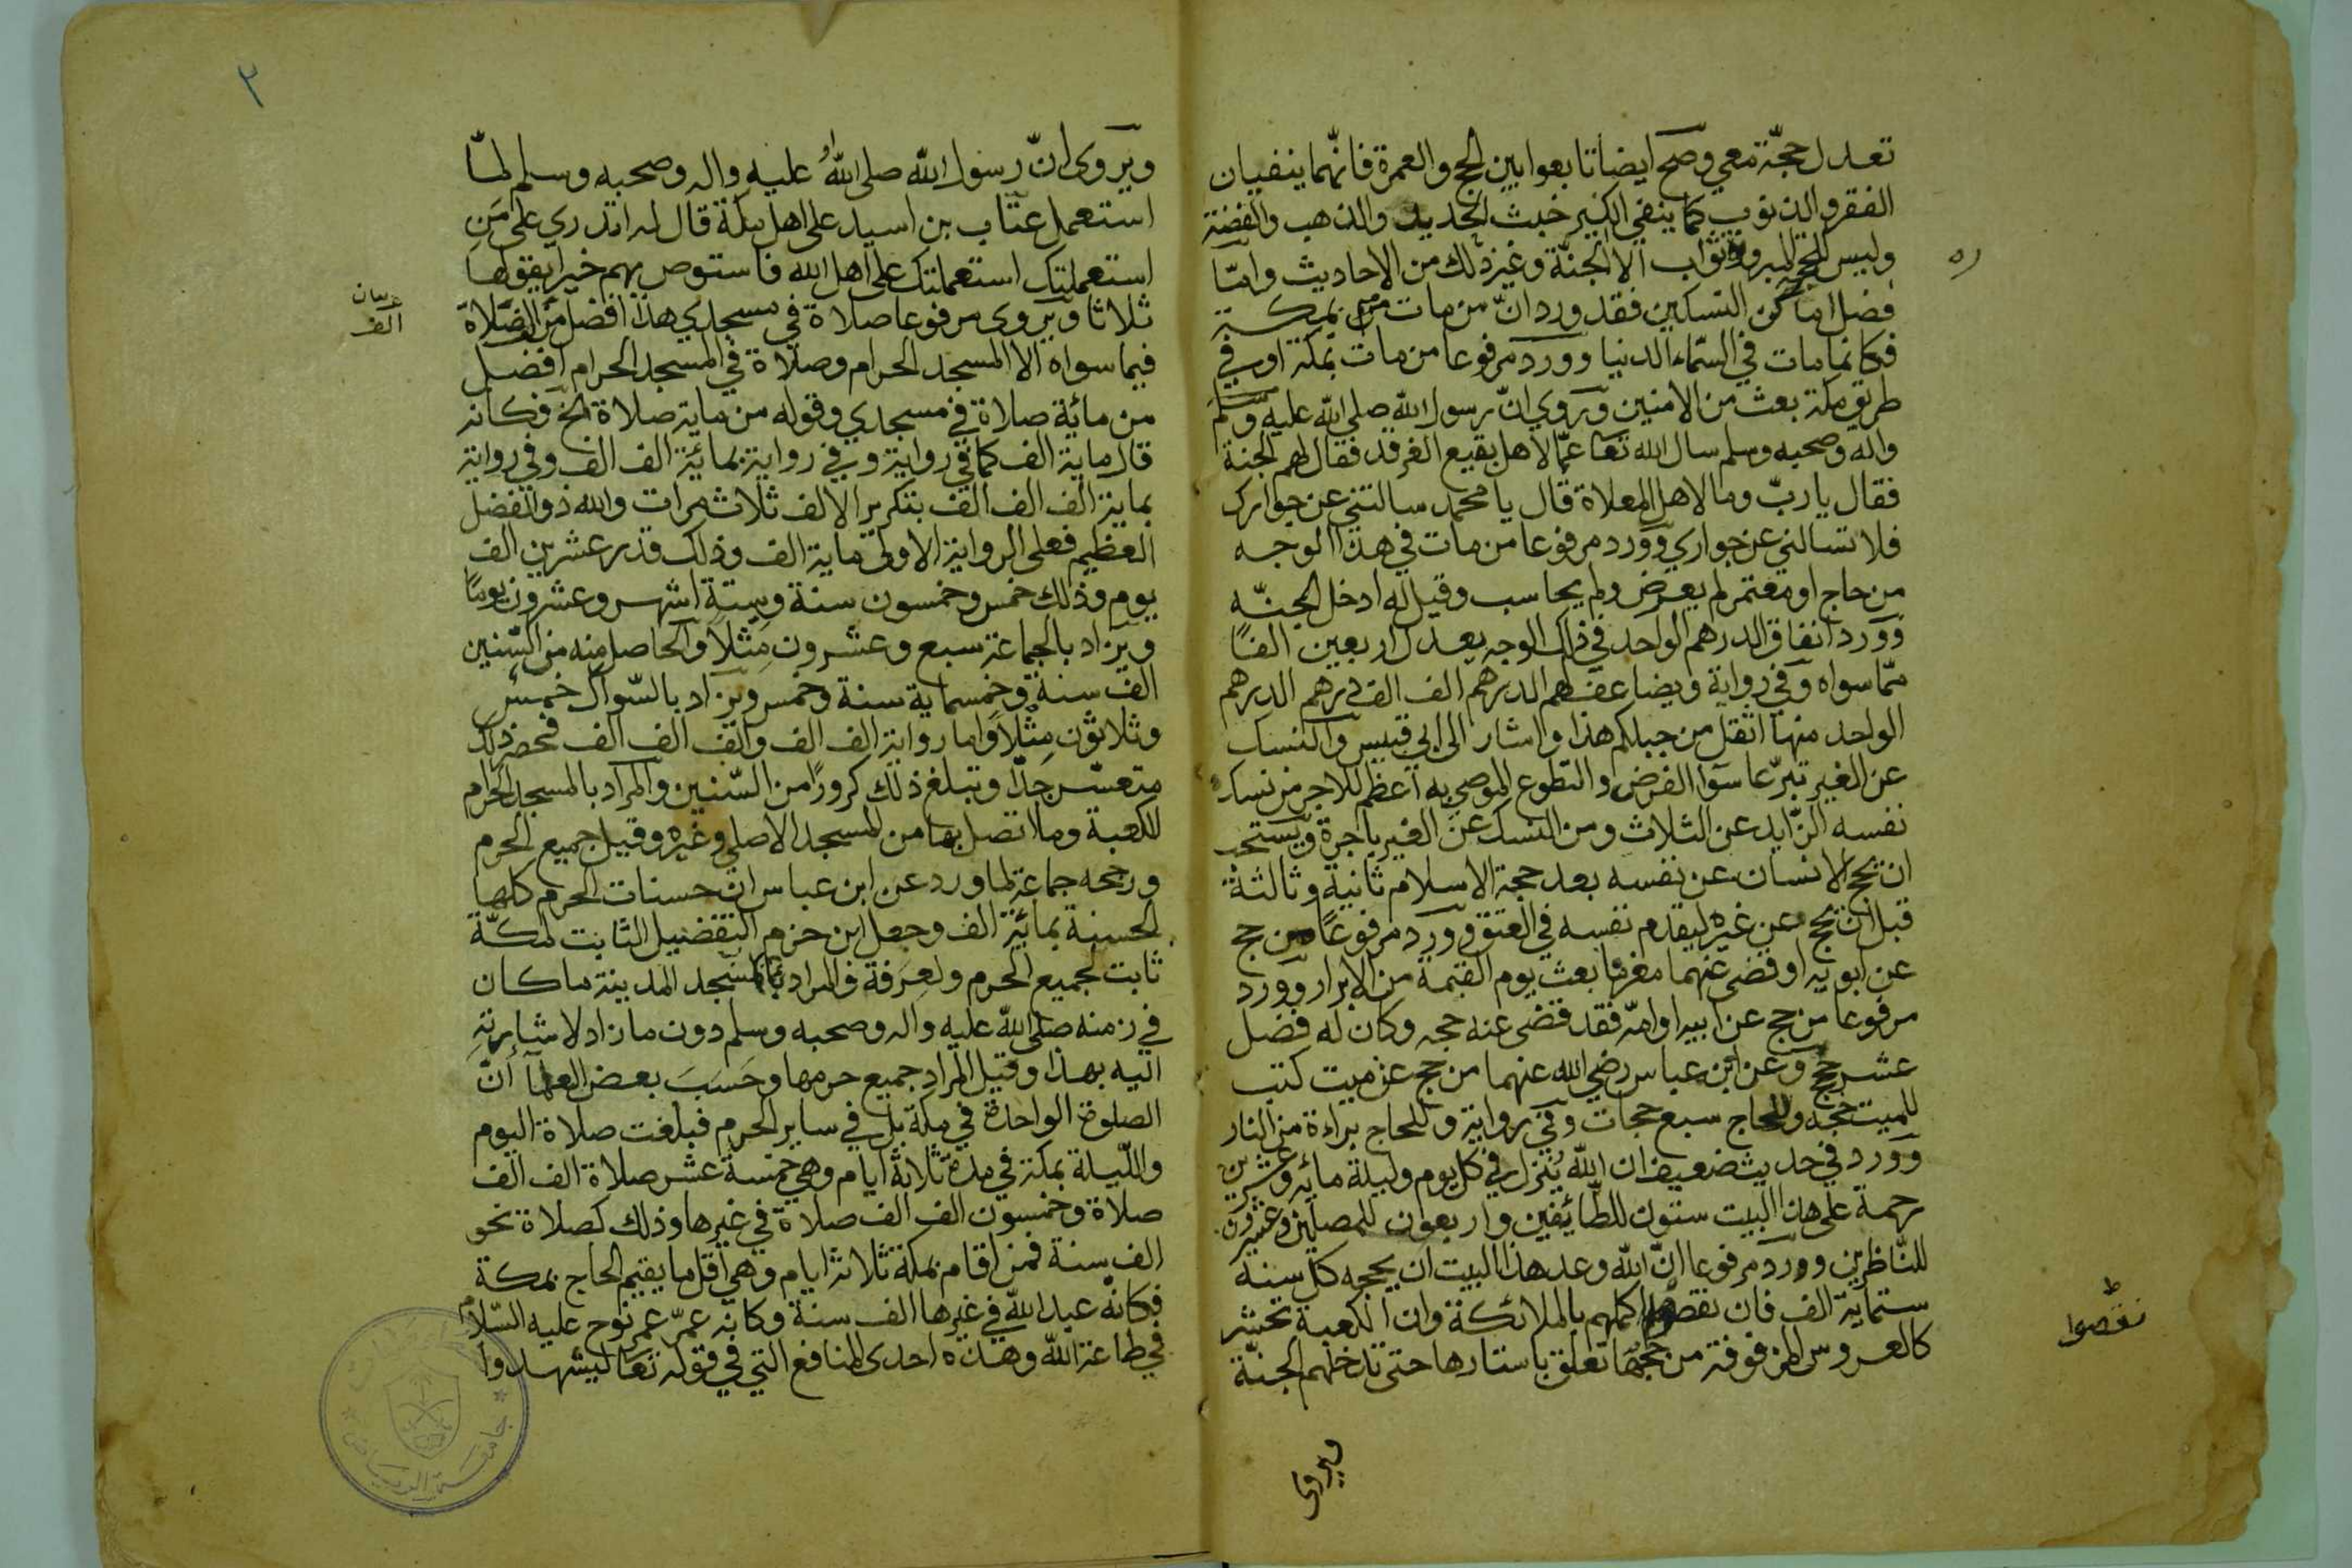 تعدل حجّة معي وصحّ ايضا تابعوا بين الحج والعمرة فانّهما ينفيان
الفقر والذنوب كما ينفي الكير خبث الحديد والذهب والفضة
وليس للحج المبرور ثواب الا الجنّة وغير ذلك من الاحاديث وامّا
فضل اماكن النسكين فقد ورد انّ من مات بمكة
فكانما مات في السّماء الدنيا وورد مرفوعا من مات بمكة او في
طريق مكة بعث من الامنين وروي انّ رسول الله صلى الله عليه وسلم
واله وصحبه وسلم سال الله تعا عمّا لاهل بقيع الغرقد فقال لهم الجنة
فقال يا ربّ وما لاهل المعلاة قال يا محمد سالتني عن جوارك
فلا تسالني عن جواري وورد مرفوعا من مات في هذا الوجه
من حاج او معتمر لم يعرض ولم يحاسب وقيل له ادخل الجنّه
وورد انفاق الدرهم الواحد في ذلك الوجه يعدل اربعين الفًا
ممّا سواه وفي رواية ويضاعف لهم الدرهم الف الف درهم الدرهم
الواحد منها اثقل من جبلكم هذا واشار الى ابي قبيس والنسك
عن الغير تبرّعا سوا الفرض والتطوع الموصى به اعظم للاجر من نسك
نفسه الزّايد عن الثلاث ومن النسك عن الغير باجرة ويستحب
ان يحج الانسان عن نفسه بعد حجة الاسلام ثانية وثالثة
قبل ان يحج عن غيره ليقدم نفسه في العتق وورد مرفوعًا من حج
عن ابويه او قضى عنهما مغرما بعث يوم القيمة من الابرار وورد
مرفوعا من حج عن ابيه او امّه فقد قضى عنه حجه وكان له فضل
عشر حجج وعن ابن عباس رضي الله عنهما من حج عن ميت كتب
للميت حجه وللحاج سبع حجات وفي رواية وللحاج براءة من النار
وورد في حديث ضعيف ان الله يُنزل في كل يوم وليلة مائه وعشرين
رحمة على هذا البيت ستون للطّائفين واربعون للمصلين وعشرون
للنّاظرين وورد مرفوعا انّ الله وعد هذا البيت ان يحجه كل سنة
ستماية الف فان نقصوا اكملهم بالملائكة وان الكعبة تحشر
كالعروس المزفوفة من حجها تعلق باستارها حتى تدخلهم الجنّة
نقصوا
ويروى
٢
ويروى انّ رسول الله صلى الله عليه واله وصحبه وسلم لمّا
استعمل عتّاب بن اسيد على اهل مكة قال له اتدري على مَن
استعملتك استعملتك على اهل الله فاستوص بهم خيرا يقولها
ثلاثا ويروى مرفوعا صلاة في مسجدي هذا افضل من الف صلاة
فيما سواه الا المسجد الحرام وصلاة في المسجد الحرام افضل
من مائية صلاة في مسجدي وقوله من ماية صلاة الخ فكانه
قال ماية الف كما في رواية وفي رواية بمائية الف الف وفي رواية
بماية الف الف الف بتكرير الالف ثلاث مرات والله ذو الفضل
العظيم فعلى الرواية الاولى ماية الف وذلك قدر عشرين الف
يوم وذلك خمس وخمسون سنة وستة اشهر وعشرون يومًا
ويزاد بالجماعة سبع وعشرون مِثلاً والحاصل منه من السّنين
الف سنة وخمسماية سنة وخمس ويزاد بالسّواك خمس
وثلاثون مِثْلاً واما رواية الف الف والف الف الف فحصر ذلك
متعسّر جدّا وتبلغ ذلك كرورًا من السّنين والمراد بالمسجد الحرام
للكعبة وما اتصل بها من المسجد الاصلي وغيره وقيل جميع الحرم
ورجحه جماعة لما ورد عن ابن عباس ان حسنات الحرم كلها
الحسنة بمائية الف وجعل ابن حزم التفضيل الثابت لمكّة
ثابت لجميع الحرم ولعِرَفة والمراد بالمسجد المدينة ما كان
في زمنه صلى الله عليه واله وصحبه وسلم دون ما زاد لاشارته
اليه بهذا وقيل المراد جميع حرمها وحَسَبَ بعض العلمآ أنّ
الصلوة الواحدة في مكة بل في ساير الحرم فبلغت صلاة اليوم
واللّيلة بمكة في مدة ثلاثة ايام وهي خمسة عشر صلاة الف الف
صلاة وخمسون الف الف صلاة في غيرها وذلك كصلاة نحو
الف سنة فمن اقام بمكة ثلاثة ايام وهي اقل ما يقيم الحاج بمكة
فكانه عبد الله في غيرها الف سنة وكانّه عمّر عمر نوح عليه السّلام
في طاعة الله وهذه احدى المنافع التي في قوله تعا ليشهدوا
جامعة الرياض